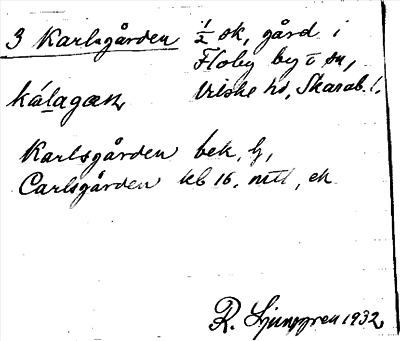 3 Karlsgården 1/2 sk, gård i
Floby by o sn,
Vilske hd, Skarab. l.
kálagæn
Karlsgården bek. hj,
Carlsgården kb 16, mtl, ek
R. Ljunggren 1932